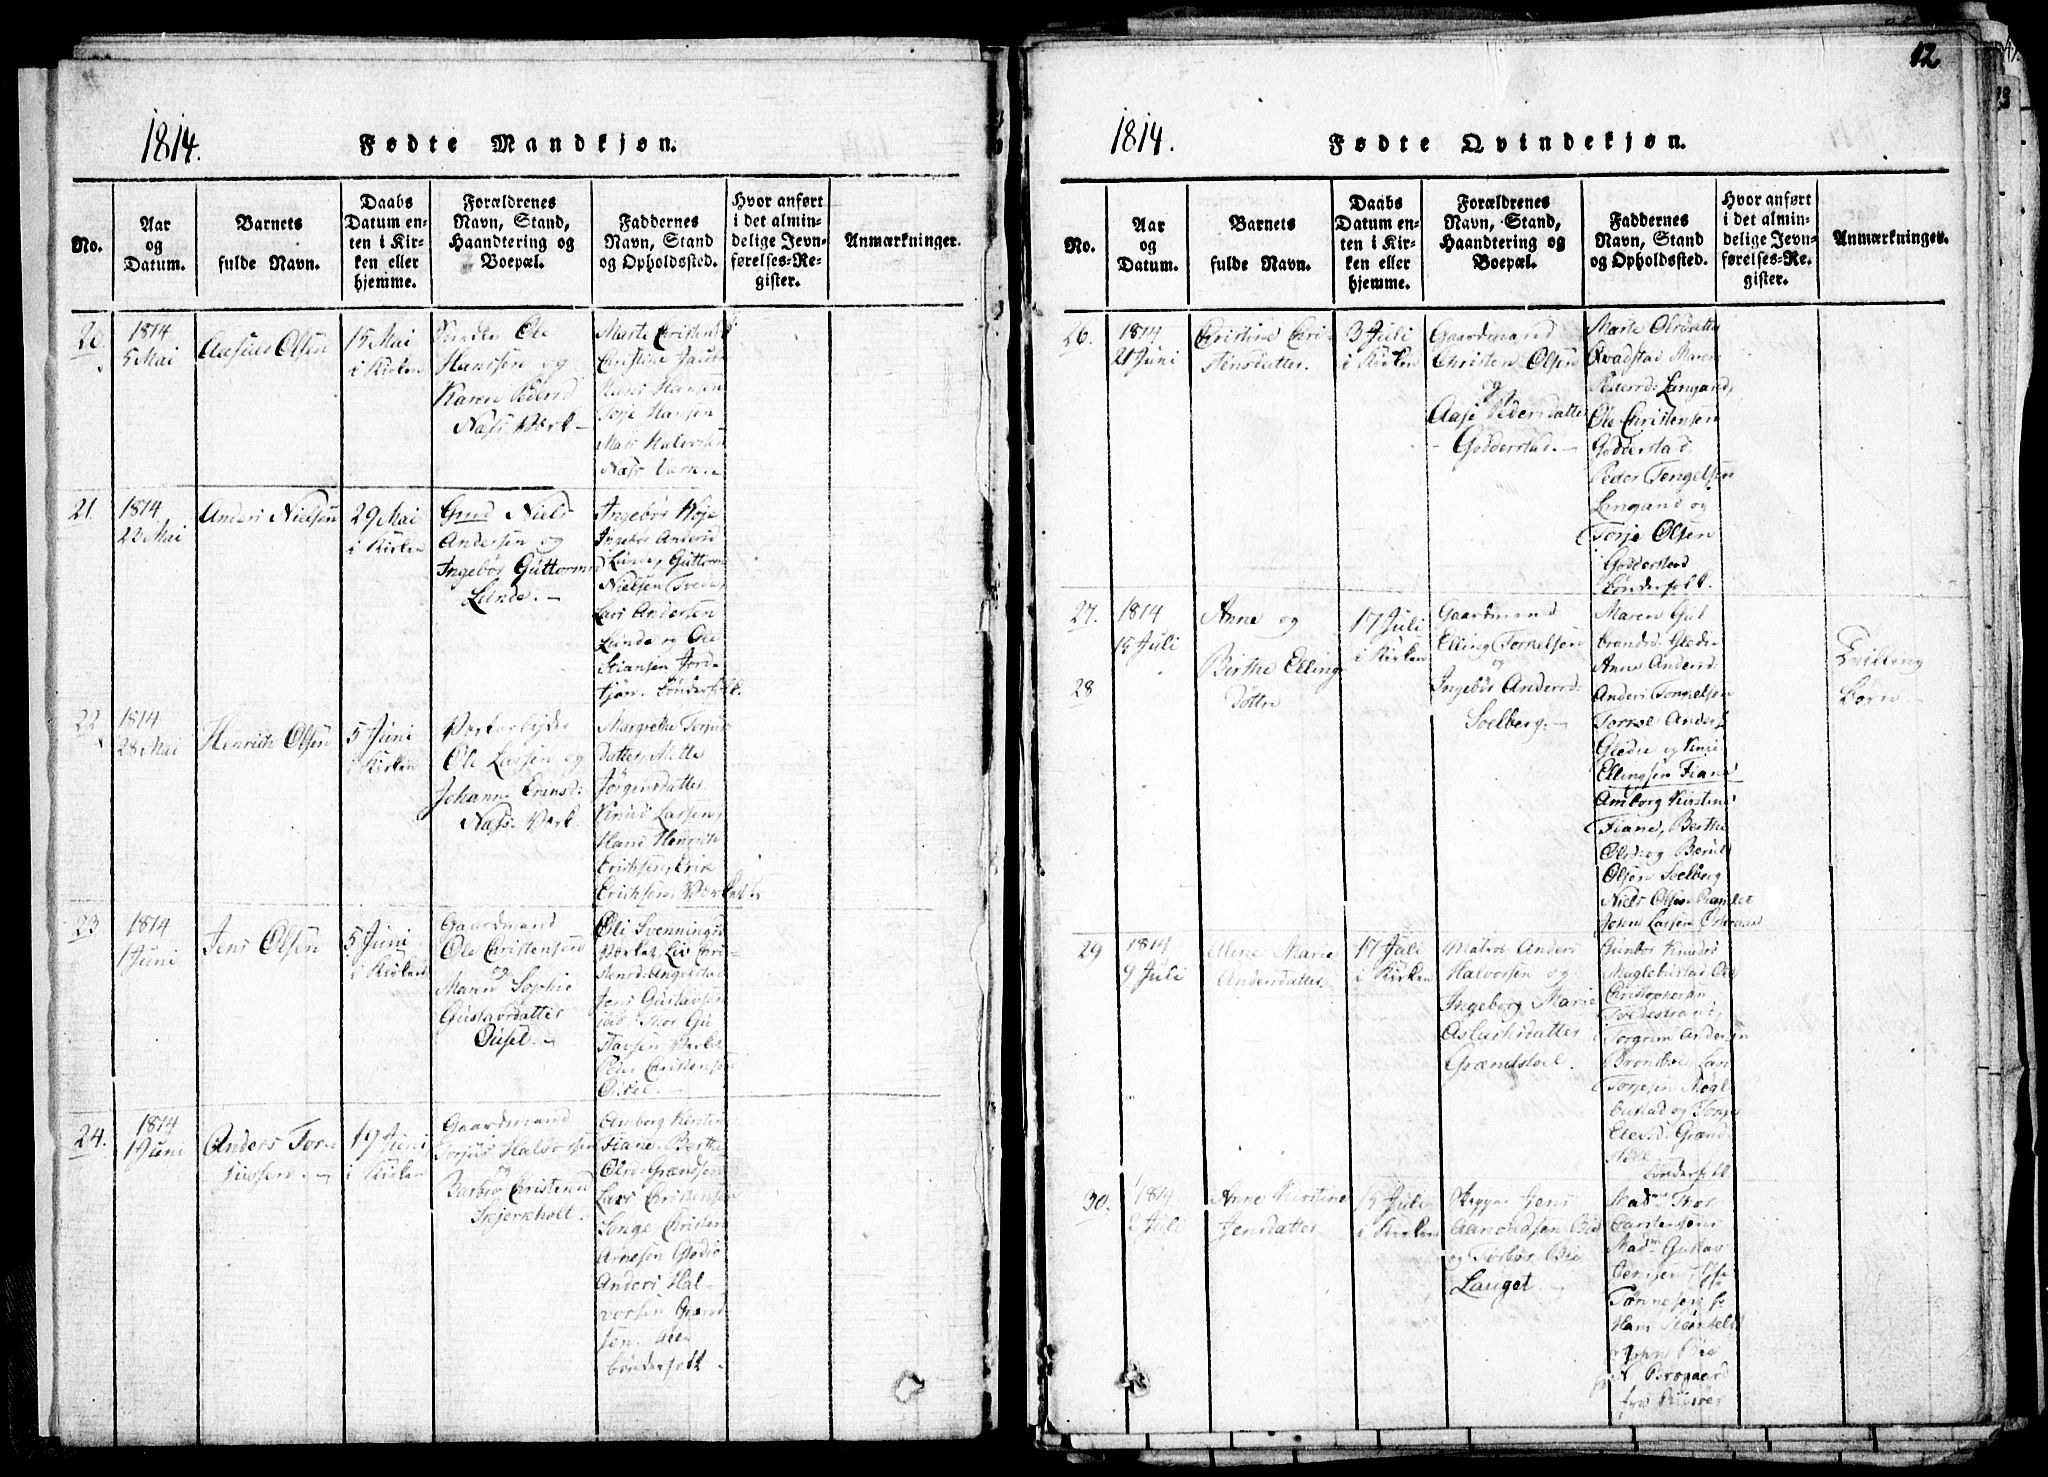 1814.
Fødte Mandkjøn.
No.
Aar
og
Datum.
Barnets
fulde Navn.
Daabs
Datum en-
ten i Kir-
ken eller
hjemme.
Forældrenes
Navn, Stand,
Haandtering og
Boepæl.
Faddernes
Navn, Stand
og Opholdssted.
Hvor anført
i det almin-
delige Jevn-
førelses-Re-
gister.
Anmærkninger.
20.
1814
5 Mai
Olsen
15 Mai
i Kirken
Ole
Hansen og
Karen Peders
Næss Værk
Marte Christens
Christine Jacobs
Hans Hansen
Torje Hansen
Mads Halvorsen
Næs Værk
21.
1814
23 Mai
Anders Nielsen
29 Mai
i Kirken
Gmd Niels
Andersen og
Ingebor Guttorms
Lunde.
Ingebor
Ingebor Anders
Lunde, Guttorm
Nielsen Tvede
Lars Andersen
Lunde og Ole
Stiansen Jord-
tjön. Bönderfolk.
22.
1814
28 Mai
Henrich Olsen
5 Juni
i Kirken
Værkarbejder
Ole Larsen og
Johanne
Næss Værk.
Margrethe Torjus
datter, Mette
Jörgensdatter
Knud Larsen
Hans Henrich
Erichsen, Erik
Erichsen, Værket
23
1814
1 Juni
Jens Olsen
5 Juni
i Kirken
Gaardmand
Ole Christensen
og
Maren Sophie
Gustavsdatter
Ousel.
Oli Svennings
Værket, Liv Chri-
stensd: Engelstad
Jens Gustavsen
Thor Gu
stavsen Værket
Peder Christensen
24.
1814
1 Juni
Anders Tor-
jussen.
19 Juni
i Kirken
Gaardmand
Torjus Halvorsen
og
Barbro Christens
Skjerkholt.
Amborg Kirstine
Fiane, Berthe
Olsd: Grændsen
Lars Christensen
Songe Christen
Arnesen Gledie
Anders Hal-
vorsen Grænd
sen, alle
bönderfolk
12
1814.
Fødte Qvindekjøn.
No.
Aar
og
Datum.
Barnets
fulde Navn.
Daabs
Datum en-
ten i Kir-
ken eller
hjemme.
Forældrenes
Navn, Stand,
Haandtering og
Boepæl.
Faddernes
Navn, Stand
og Opholdssted.
Hvor anført
i det almin-
delige Jevn-
førelses-Re-
gister.
Anmærkninger.
26.
1814
21 Juni
Christine Chri-
stensdatter.
3 Juli
i Kirken
Gaardmand
Christen Olsen
og
Aase Pedersdatter
Godderstad.
Marte Olsdatter
Qvadstad Maren
Pedersd: Langand,
Ole Christensen
Godderstad
Peder Tengelsen
Langand og
Torje Olsen
Godderstad
Bönderfolk.
27.
28
1814
15 Juli
Anne og
Birthe Ellings
Döttre
17 Juli
i Kirken
Gaardmand
Elling Torkelsen
og
Ingebor Andersd:
Soelberg.
Maren Gul
brandsd: Gledie
Anne Andersd:
Anders Torkelsen
Torkel Anders
Gledie og Knud
Ellingsen Fiane
Amborg Kirstine
Fiane, Berthe
Olsd: og Berul
Olsen Soelberg
Niels Olsen Ramlet
John Larsen
Tvilling
börn
29
1814
9 Juli
Elene Marie
Andersdatter
17 Juli
i Kirken
Matros Anders
Halvorsen og
Ingeborg Marie
Aslachsdatter
Grændstöel.
Gunbor Knudsd
Maglebustad Ole
Christophersen
Tvedestrand,
Torgrim Andersen
Lars
Torjesen Magl
bustad og
Grænd
stöel
bönderfolk
30.
1814
2 Juli
Anne Kirstine
Jensdatter
15 Juli
i Kirken
Skipper Jens
Aamondsen Bie
og Torbor Bie
Lauget.
Mad: Thor
Carstensens
Mad: Gustav
Jensen
Tönnesen
Hans
John Bie
A. Brogaard
fra Riisöer